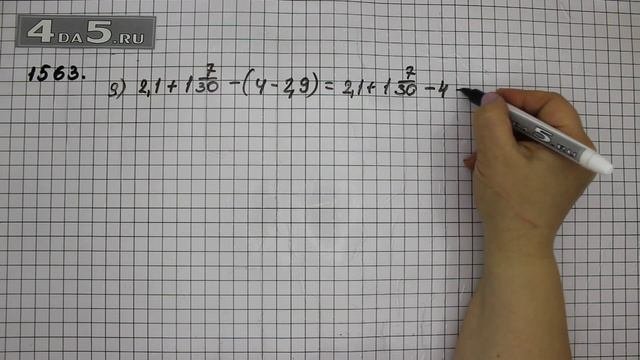 4DA5.RU
1563.
д) 2,1 + 1 7/30 - (4 - 2,9) = 2,1 + 1 7/30 - 4